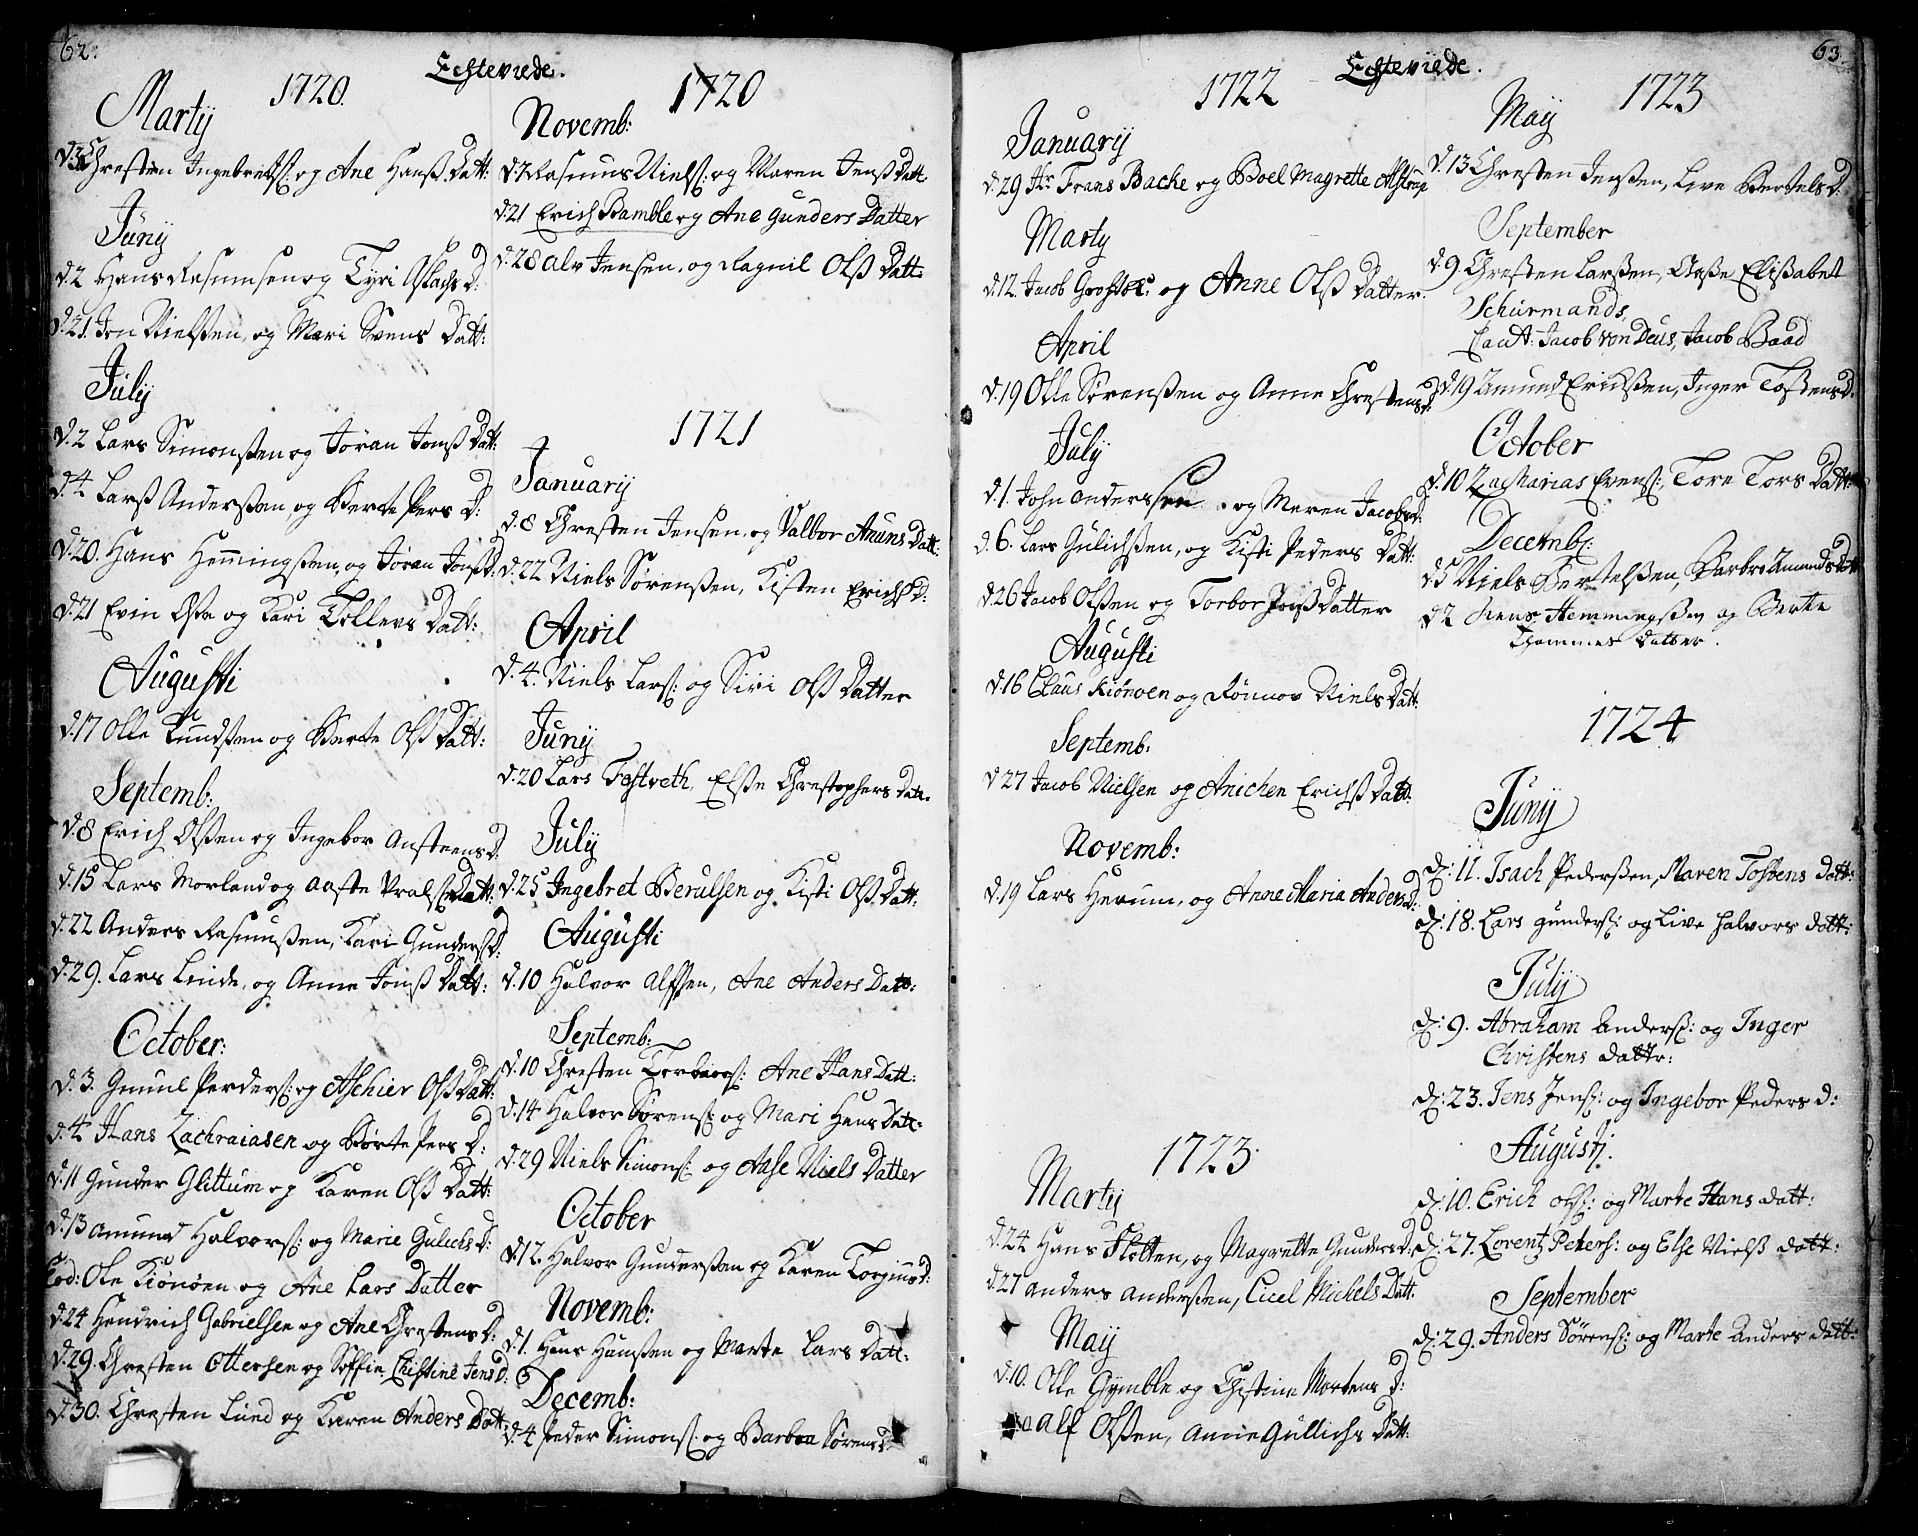 62.
Echteviede.
1720.
Martij
d. Chresten Ingebretss: og Ane Hanss Datt:
Junij
d. 2 Hans Rasmusen og Tyri Aslachs D:
d. 21. Jon Nielssen, og Mari Svens Datt:
July
d. 2 Lars Simonssen og Joran Jonss Datt:
d. 4. Larss Anderssen, og Berte Pers D:
d. 20. Hans Hemingssen, og Joran Jonss D:
d. 21 Evin og Kari Tollevs Datt:
Augusti
d. 17 Olle Knudssen og Berte Olss Datt:
Septemb:
d. 8 Erich Olssen og Ingebor Ansteens D:
d. 15 Lars Morland og Aaste Datt:
d. 22 Anders Rasmussen, Kari Gunders D:
d. 29. Lars Linde, og Anne Jonss Datt:
October:
d. 3. Gunul Perderss: og Aschier Olss Datt:
d. 4 Hans Zachraiasen og Børte Pers D:
d. 11 Gunder Glittum og Karen Olss Datt:
d. 13 Amund Halvorss: og Marie Gulichs D:
Eod: Ole Kiønøen og Ane Lars Datter
d. 24 Hendrich Gabrielsen og Ane Chrestens D:
d. 29. Chresten Ottersen og Soffie Christine Jens D:
d. 30. Chresten Lund og Karen Anders Datt:
1720
Novemb:
d. 7 Rasmus Nielss: og Maren Jenss Datt
d. 21 Erich Bamble og Ane Gunders Datter
d. 28 Alv Jensen, og Ragnil Olss Datt:
1721
Januarij
d. 8 Chresten Jensen, og Valbor Amuns Datt:
d. 22 Niels Sørenssen, Kisten Erichs D:
April
d. 4. Niels Larss: og Siri Olss Datter
Junij
d. 20 Lars Tostveth, Elsse Chrestophers Datt.
Julij
d. 25 Ingebret Berulsen og Kisti Olss Datt:
Augusti
d. 10 Halvor Alfssen, Ane Anders Datt:
Septemb:
d. 10 Chresten Ane Hans Datt:
d. 14 Halvor Sørenss: og Mari Hans Datt:
d. 29 Niels Simonss: og Aase Niels Datter
October
d. 12. Halvor Gunderssen og Karen Torgius D:
Novemb:
d. 1. Hans Hanssen og Marte Lars Datt:
Decemb:
d. 4 Peder Simonss: og Barbra Sørens D:
63.
Echteviede.
1722
Januarij
d. 29 Hr Frans Backe og Boel Magrette Alstrup
Marty
d. 12. Jacob og Anne Olss Datter.
April
d. 19 Olle Sørenssen og Anne Chrestens D:
July
d. 1. John Anderssen og Maren Jacobs D:
d. 6. Lars Gulichssen, og Kisti Peders Datt:
d. 26 Jacob Olssen og Torbor Jonss Datter
Augusti
d. 16 Claus Kiønøen og Rønnov Niels Datt:
Septemb:
d. 27 Jacob Nielsen og Anichen Erichss Datt:
Novemb:
d. 19 Lars Herum, og Anne Maria Anders D:
1723
Martij
d. 24 Hans Flotten, og Magrette Gunders D:
d. 27 Anders Anderssen, Cicel Michels Datt.
Maij
d. 10. Olle Gymble og Christine Mortens D:
Alf Olssen, Anne Gullichs Datt:
1723
Maij
d. 13 Chresten Jenssen, Live Bertels D:
September
d. 9. Chresten Larssen, Aasse Elissabet
Schurmands,
Caut: Jacob von Deus, Jacob Baad
d. 19 Amund Erichssen, Inger Tostens D.
October
d. 10 Zacharias Evenss:, Tore Tors Datt:
Decemb:
d. 5 Niels Bertelssen, Barbro Amunds Datt
d. 2 Hans Hemmingssen og Berte
Thommes Datter.
1724
Junij
d: 11. Isach Pederssen, Maren Tosbens datt:
d: 18. Lars Gunderss: og Live Halvors datt:
Julij
d: 9. Abraham Anderss: og Inger
Christens dattr:
d: 23. Jens Jenss: og Ingebor Peders d:
Augustj.
d: 10. Erich Olss: og Marte Hans datt:
d: 27. Lorentz Peterss: og Else Nielss datt:
September
d: 29. Anders Sørenss: og Marte Anders datt: